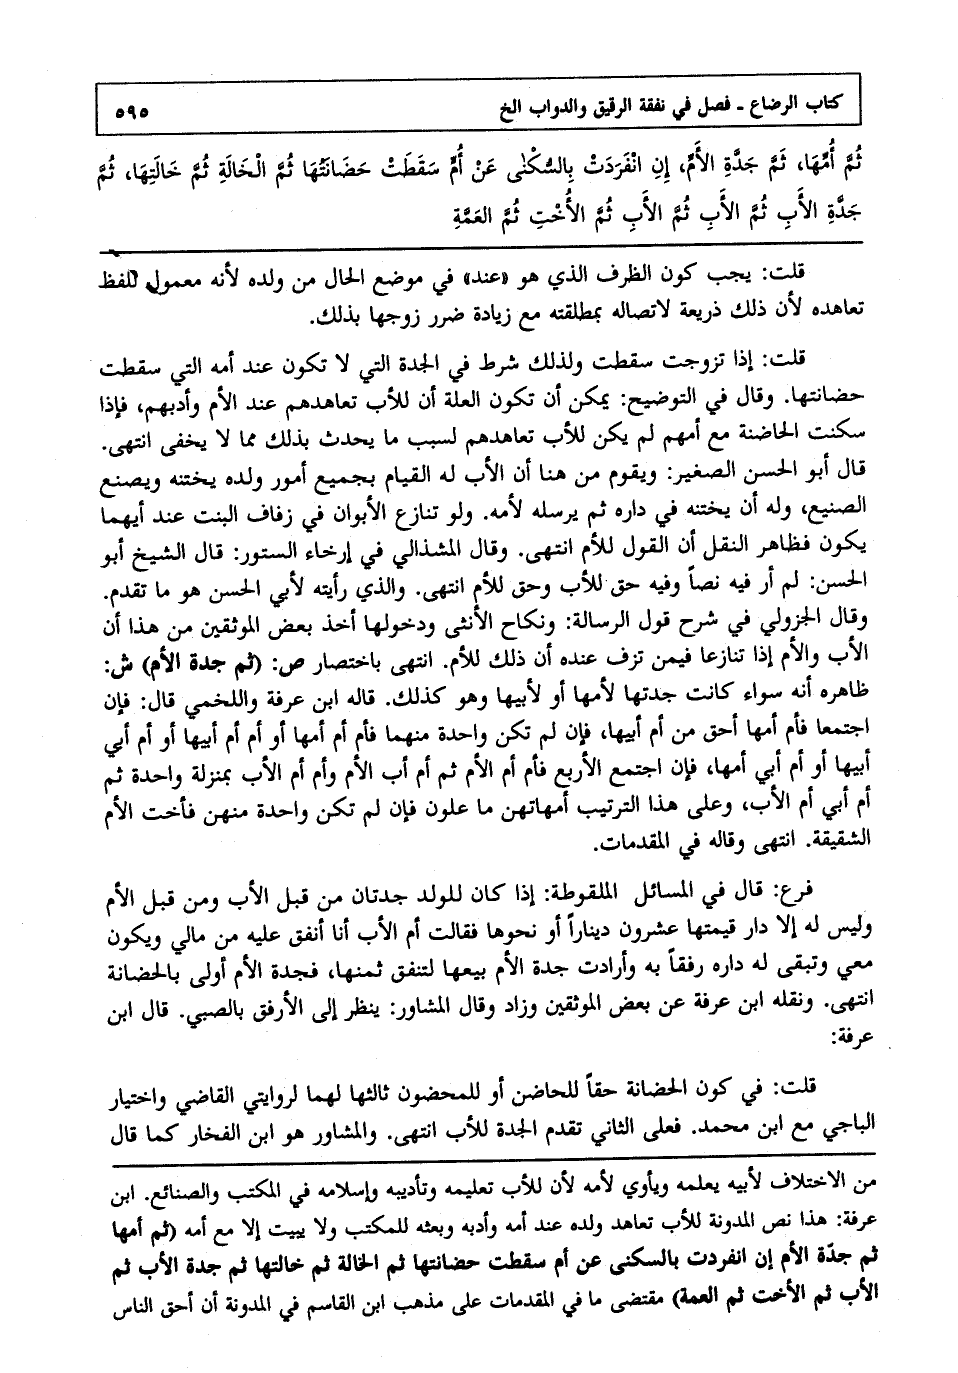 كتاب الرضاع ـ فصل في نفقة الرقيق والدواب الخ ٥٩٥
ثُمَّ أُمُّهَا، ثَمَّ جَدَّةِ الأَمِّ، إِنِ انْفَرَدَتْ بِالسُّكْنٰى عَنْ أُمٍّ سَقَطَتْ حَضَانَتُهَا ثُمَّ الْخَالَةِ ثُمَّ خَالَتِهَا، ثُمَّ
جَدَّةِ الأَبِ ثُمَّ الأَبِ ثُمَّ الأَبِ ثُمَّ الأُخْتِ ثُمَّ العَمَّةِ
قلت: يجب كون الظرف الذي هو «عند» في موضع الحال من ولده لأنه معمول للفظ
تعاهده لأن ذلك ذريعة لاتصاله بمطلقته مع زيادة ضرر زوجها بذلك.
قلت: إذا تزوجت سقطت ولذلك شرط في الجدة التي لا تكون عند أمه التي سقطت
حضانتها. وقال في التوضيح: يمكن أن تكون العلة أن للأب تعاهدهم عند الأم وأدبهم، فإذا
سكنت الحاضنة مع أمهم لم يكن للأب تعاهدهم لسبب ما يحدث بذلك مما لا يخفى انتهى.
قال أبو الحسن الصغير: ويقوم من هنا أن الأب له القيام بجميع أمور ولده يختنه ويصنع
الصنيع، وله أن يختنه في داره ثم يرسله لأمه. ولو تنازع الأبوان في زفاف البنت عند أيهما
يكون فظاهر النقل أن القول للأم انتهى. وقال المشذالي في إرخاء الستور: قال الشيخ أبو
الحسن: لم أر فيه نصاً وفيه حق للأب وحق للأم انتهى. والذي رأيته لأبي الحسن هو ما تقدم.
وقال الجزولي في شرح قول الرسالة: ونكاح الأنثى ودخولها أخذ بعض الموثقين من هذا أن
الأب والأم إذا تنازعا فيمن تزف عنده أن ذلك للأم. انتهى باختصار ص: (ثم جدة الأم) ش:
ظاهره أنه سواء كانت جدتها لأمها أو لأبيها وهو كذلك. قاله ابن عرفة واللخمي قال: فإن
اجتمعا فأم أمها أحق من أم أبيها، فإن لم تكن واحدة منهما فأم أم أمها أو أم أم أبيها أو أم أبي
أبيها أو أم أبي أمها، فإن اجتمع الأربع فأم أم الأم ثم أم أب الأم وأم أم الأب بمنزلة واحدة ثم
أم أبي أم الأب، وعلى هذا الترتيب أمهاتهن ما علون فإن لم تكن واحدة منهن فأخت الأم
الشقيقة. انتهى وقاله في المقدمات.
فرع: قال في المسائل الملقوطة: إذا كان للولد جدتان من قبل الأب ومن قبل الأم
وليس له إلا دار قيمتها عشرون ديناراً أو نحوها فقالت أم الأب أنا أنفق عليه من مالي ويكون
معي وتبقى له داره رفقاً به وأرادت جدة الأم بيعها لتنفق ثمنها، فجدة الأم أولى بالحضانة
انتهى. ونقله ابن عرفة عن بعض الموثقين وزاد وقال المشاور: ينظر إلى الأرفق بالصبي. قال ابن
عرفة:
قلت: في كون الحضانة حقاً للحاضن أو للمحضون ثالثها لهما لروايتي القاضي واختيار
الباجي مع ابن محمد. فعلى الثاني تقدم الجدة للأب انتهى. والمشاور هو ابن الفخار كما قال
من الاختلاف لأبيه يعلمه ويأوي لأمه لأن للأب تعليمه وتأديبه وإسلامه في المكتب والصنائع. ابن
عرفة: هذا نص المدونة للأب تعاهد ولده عند أمه وأدبه وبعثه للمكتب ولا يبيت إلا مع أمه (ثم أمها
ثم جدّة الأم إن انفردت بالسكنى عن أم سقطت حضانتها ثم الخالة ثم خالتها ثم جدة الأب ثم
الأب ثم الأخت ثم العمة) مقتضى ما في المقدمات على مذهب ابن القاسم في المدونة أن أحق الناس